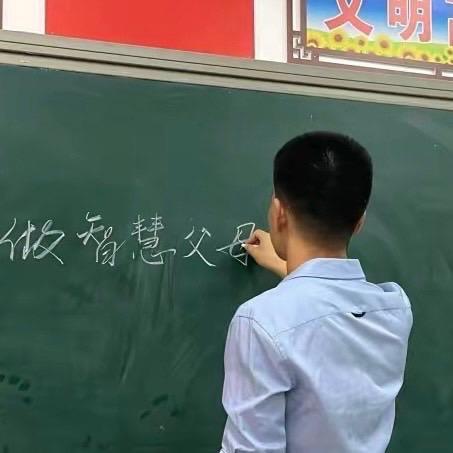 文明
做智慧父母